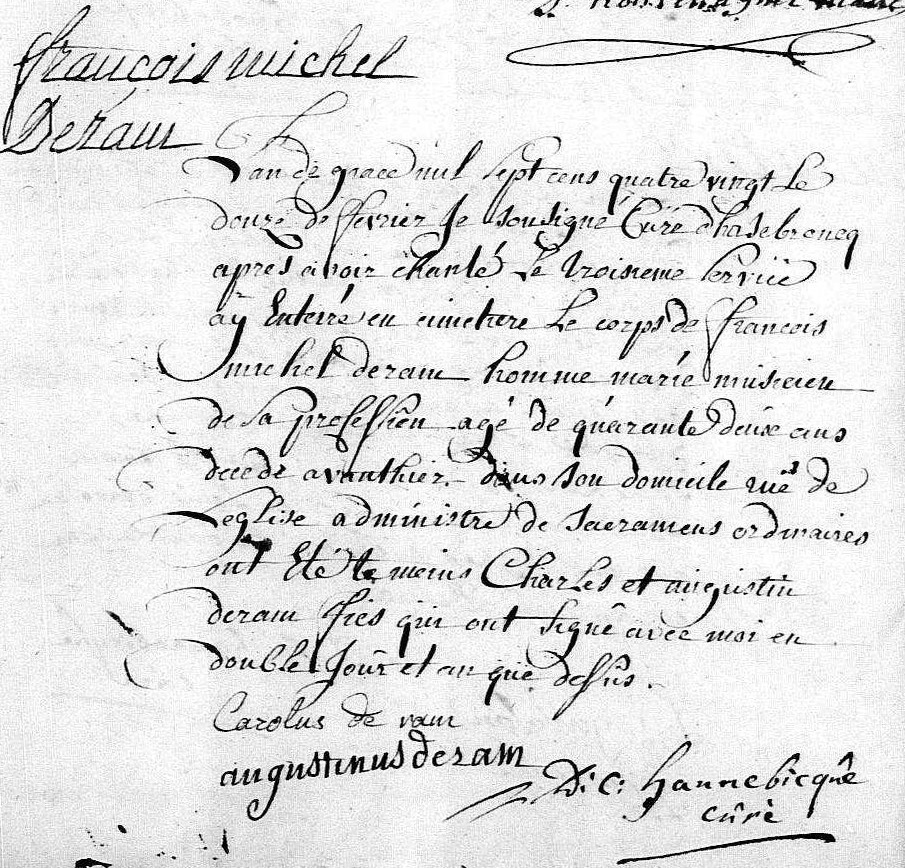 françois michel
Deram
L'an de grace mil sept cens quatre vingt Le
douze de fevrier Je sousigné Curé d'hasebroucq
apres avoir chanté Le troisieme service
ay Enterré en cimetiere Le corps de francois
michel deram homme marié musicien
de sa profession agé de quarante deux ans
decedé avanthier dans son domicile rue de
Leglise administré de sacramens ordinaires
ont Eté temeins Charles et augustin
deram fies qui ont signé avec moi en
double Jour et an que dessus.
Carolus de ram
augustinus deram
D: C: Hannebicque
curé